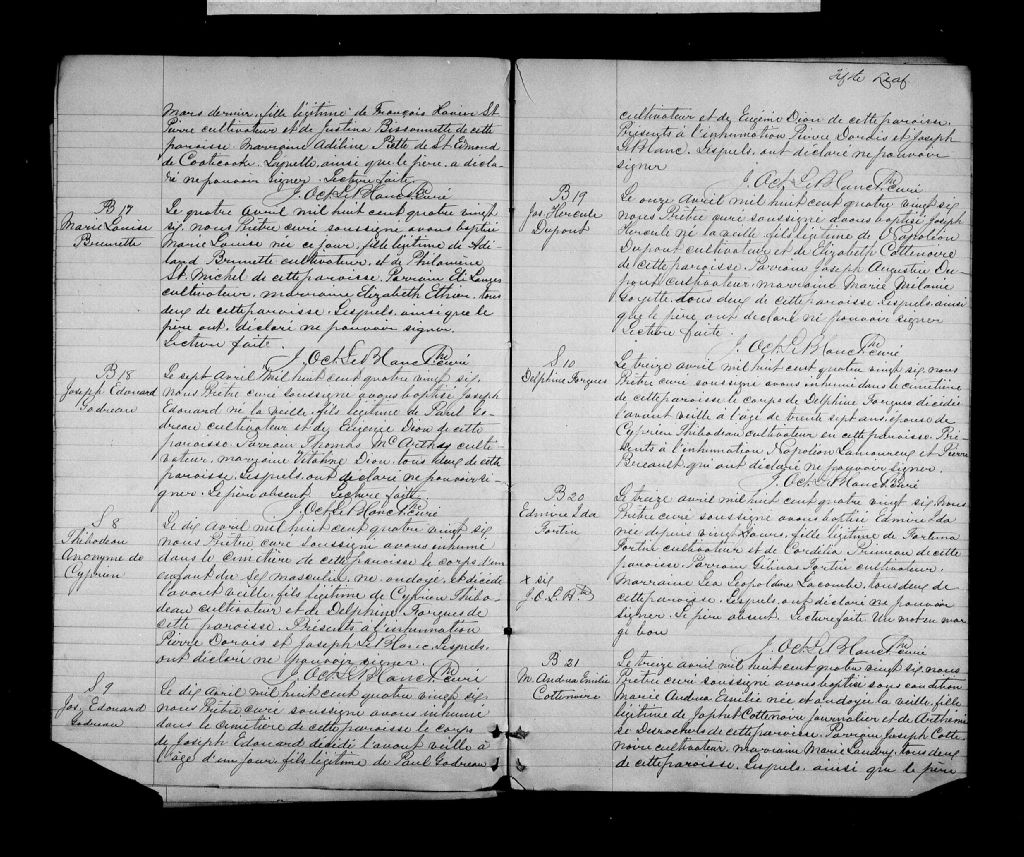 mars dernier, fille légitime de François Xavier St
Pierre cultivateur et de Justina Bissonnette de cette
paroisse Marraine Adiline Piette de St Edmond
de Coaticooke. Laquelle, ainsi que le père, a décla-
ré ne pouvoir signer. Lecture faite.
J. Oct. LeBlanc Ptre curé
B 17
Marie Louise
Brunette
Le quatre avril mil huit cent quatre vingt
six, nous Prêtre curé soussigné avons baptisé
Marie Louise née ce jour, fille légitime de
Brunette cultivateur, et de Philomène
St. Michel de cette paroisse. Parrain
cultivateur, marraine Elizabeth Ethier, tous
deux de cette paroisse. Lesquels, ainsi que le
père ont déclaré ne pouvoir signer.
Lecture faite.
J. Oct. LeBlanc Ptre curé
B 18
Joseph Edouard
Godreau
Le sept avril mil huit cent quatre vingt six,
nous Prêtre curé soussigné avons baptisé Joseph
Edouard né la veille, fils légitime de Paul Go-
dreau cultivateur et de Eugénie Dion de cette
paroisse Parrain Thomas McArthur culti-
vateur, marraine Vitaline Dion, tous deux de cette
paroisse. Lesquels ont déclaré ne pouvoir si-
gner. Le père absent. Lecture faite.
J. Oct. LeBlanc Ptre curé
S 8
Thibodeau
Anonyme de
Cyprien
Le dix avril mil huit cent quatre vingt six,
nous Prêtre curé soussigné avons inhumé
dans le cimetière de cette paroisse le corps d'un
enfant du sex masculin, né, ondoyé, et décédé
l'avant veille, fils légitime de Cyprien Thibo-
deau cultivateur et de Delphine Forgues de
cette paroisse. Présents à l'inhumation
Pierre Dorais et Joseph LeBlanc. Lesquels,
ont déclaré ne pouvoir signer.
J. Oct. LeBlanc Ptre curé
S 9
Jos. Edouard
Godreau
Le dix avril mil huit cent quatre vingt six,
nous Prêtre curé soussigné avons inhumé
dans le cimetière de cette paroisse le corps
de Joseph Edouard décédé l'avant veille à
l'âge d'un jour, fils légitime de Paul Godreau
Fifte Leaf
cultivateur et de Eugénie Dion de cette paroisse.
Présents à l'inhumation Pierre Dorais et Joseph
LeBlanc. Lesquels, ont déclaré ne pouvoir
signer
J. Oct. LeBlanc Ptre curé
B 19
Jos. Hercule
Dupont
Le onze avril mil huit cent quatre vingt six
nous Prêtre curé soussigné avons baptisé Joseph
Hercule né la veille, fils légitime de Napoléon
Dupont cultivateur et de Elizabeth Cottenoire
de cette paroisse. Parrain Joseph Augustin Du-
pont cultivateur, marraine Marie Mélanie
Goyette, tous deux de cette paroisse. Lesquels, ainsi
que le père ont déclaré ne pouvoir signer
Lecture faite.
J. Oct. LeBlanc Ptre curé
S 10
Delphine Forgues
Le treize avril mil huit cent quatre vingt six, nous
Prêtre curé soussigné avons inhumé dans le cimetière
de cette paroisse le corps de Delphine Forgues décédée
l'avant veille à l'âge de trente sept ans, épouse de
Cyprien Thibodeau cultivateur en cette paroisse. Pré-
sents à l'inhumation Napoléon Lamoureux et Pierre
qui ont déclaré ne pouvoir signer.
J. Oct. LeBlanc Ptre curé
B 20
Edmire Ida
Fortin
Le treize avril mil huit cent quatre vingt six, nous
Prêtre curé soussigné avons baptisé Edmire Ida
née depuis vingt jours, fille légitime de Fortuna
Fortin cultivateur et de Cordélia Primeau de cette
paroisse. Parrain Fortin cultivateur,
marraine Léa Léopoldine Lacombe, tous deux de
cette paroisse. Lesquels, ont déclaré ne pouvoir
signer. Le père absent. Lecture faite. Un mot en mar-
ge bon
x six
J.O.L.B. Ptre
J. Oct. LeBlanc Ptre curé
B 21
M. Andrea Emilie
Cottenoire
Le treize avril mil huit cent quatre vingt six, nous
Prêtre curé soussigné avons baptisé sous condition
Marie Andrea Emilie née et ondoyée la veille, fille
légitime de Japhet Cottenoire journalier et de Arthémi-
se Desrochers de cette paroisse. Parrain Joseph Cotte-
noire cultivateur, marraine Marie Landry, tous deux
de cette paroisse. Lesquels, ainsi que le père